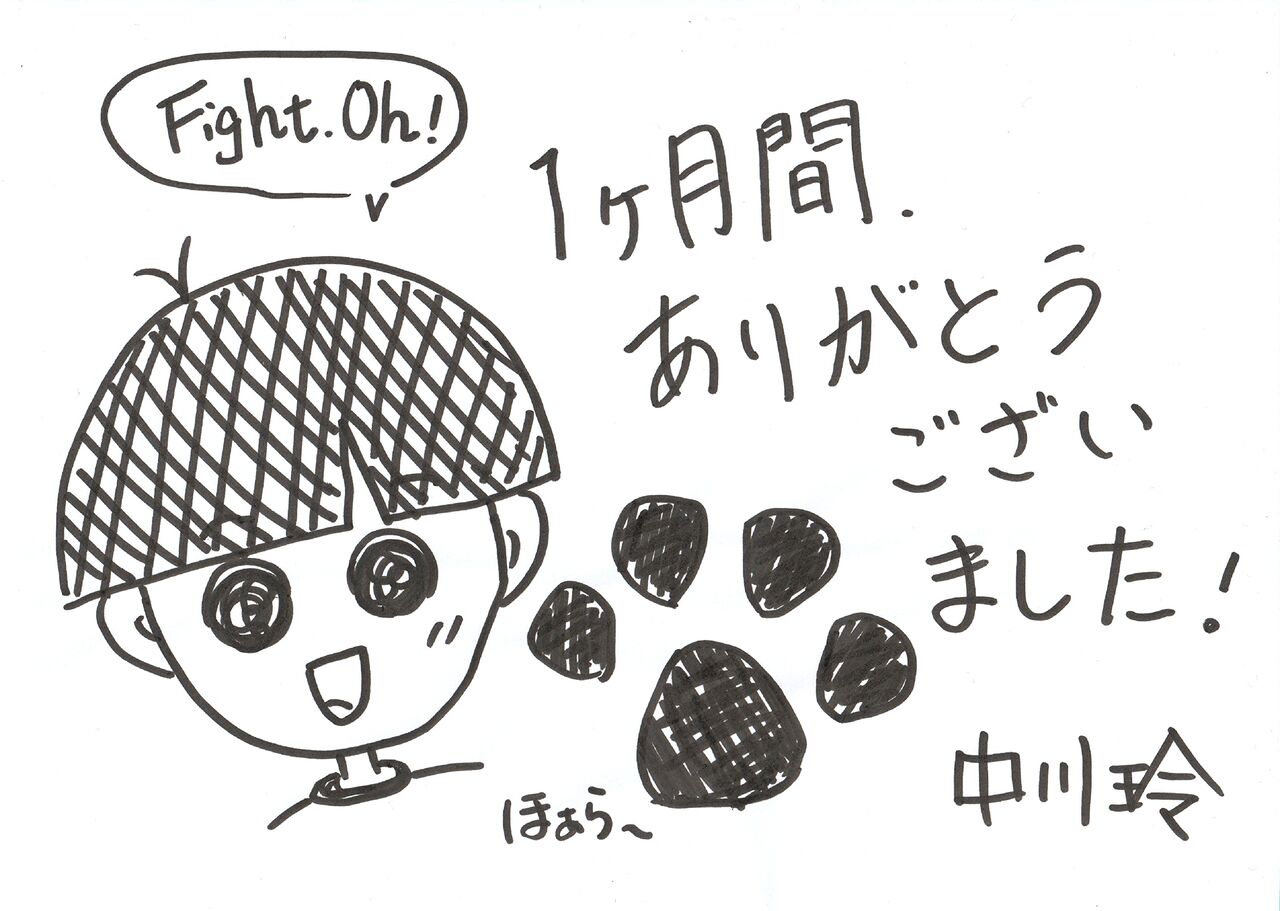 Fight. Oh!
1ヶ月間.
ありがとう
ござい
ました!
ほぁら〜
中川玲